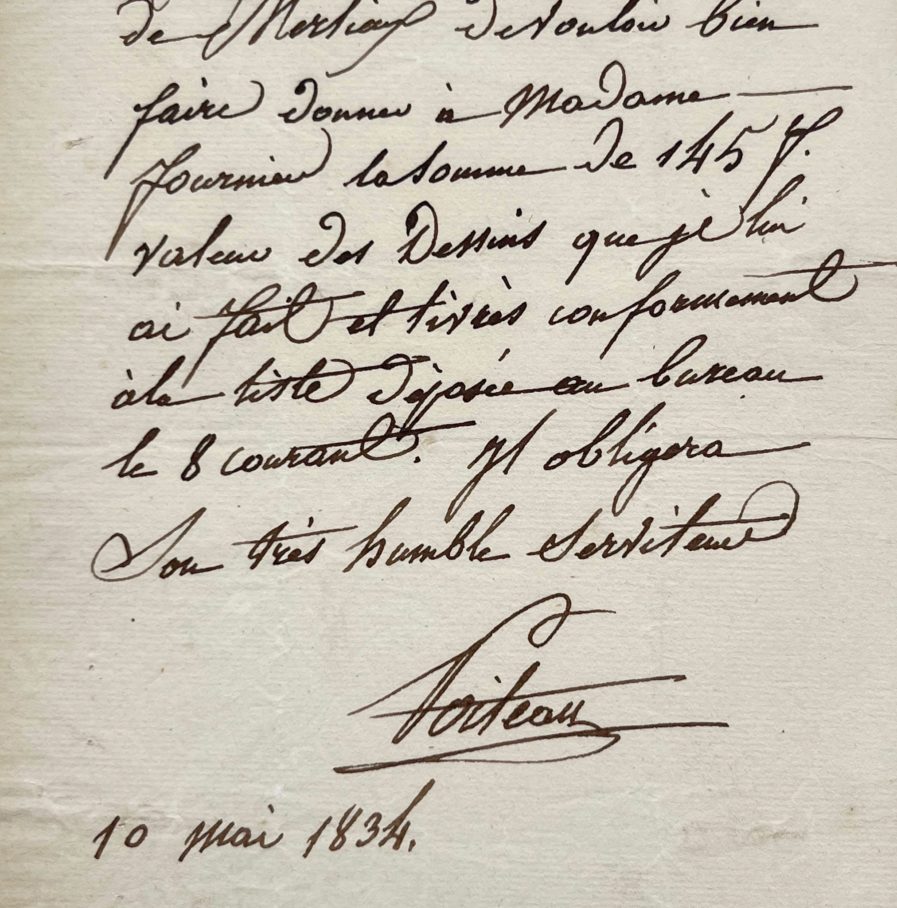 de Mertiaux de vouloir bien
faire donner à Madame
fournier la somme de 145 f.
valeur des Dessins que je lui
ai fait et livrés conformement
à la liste déposée au bureau
le 8 courant. Yl obligera
Son très humble Serviteur
Poiteau
10 mai 1834.